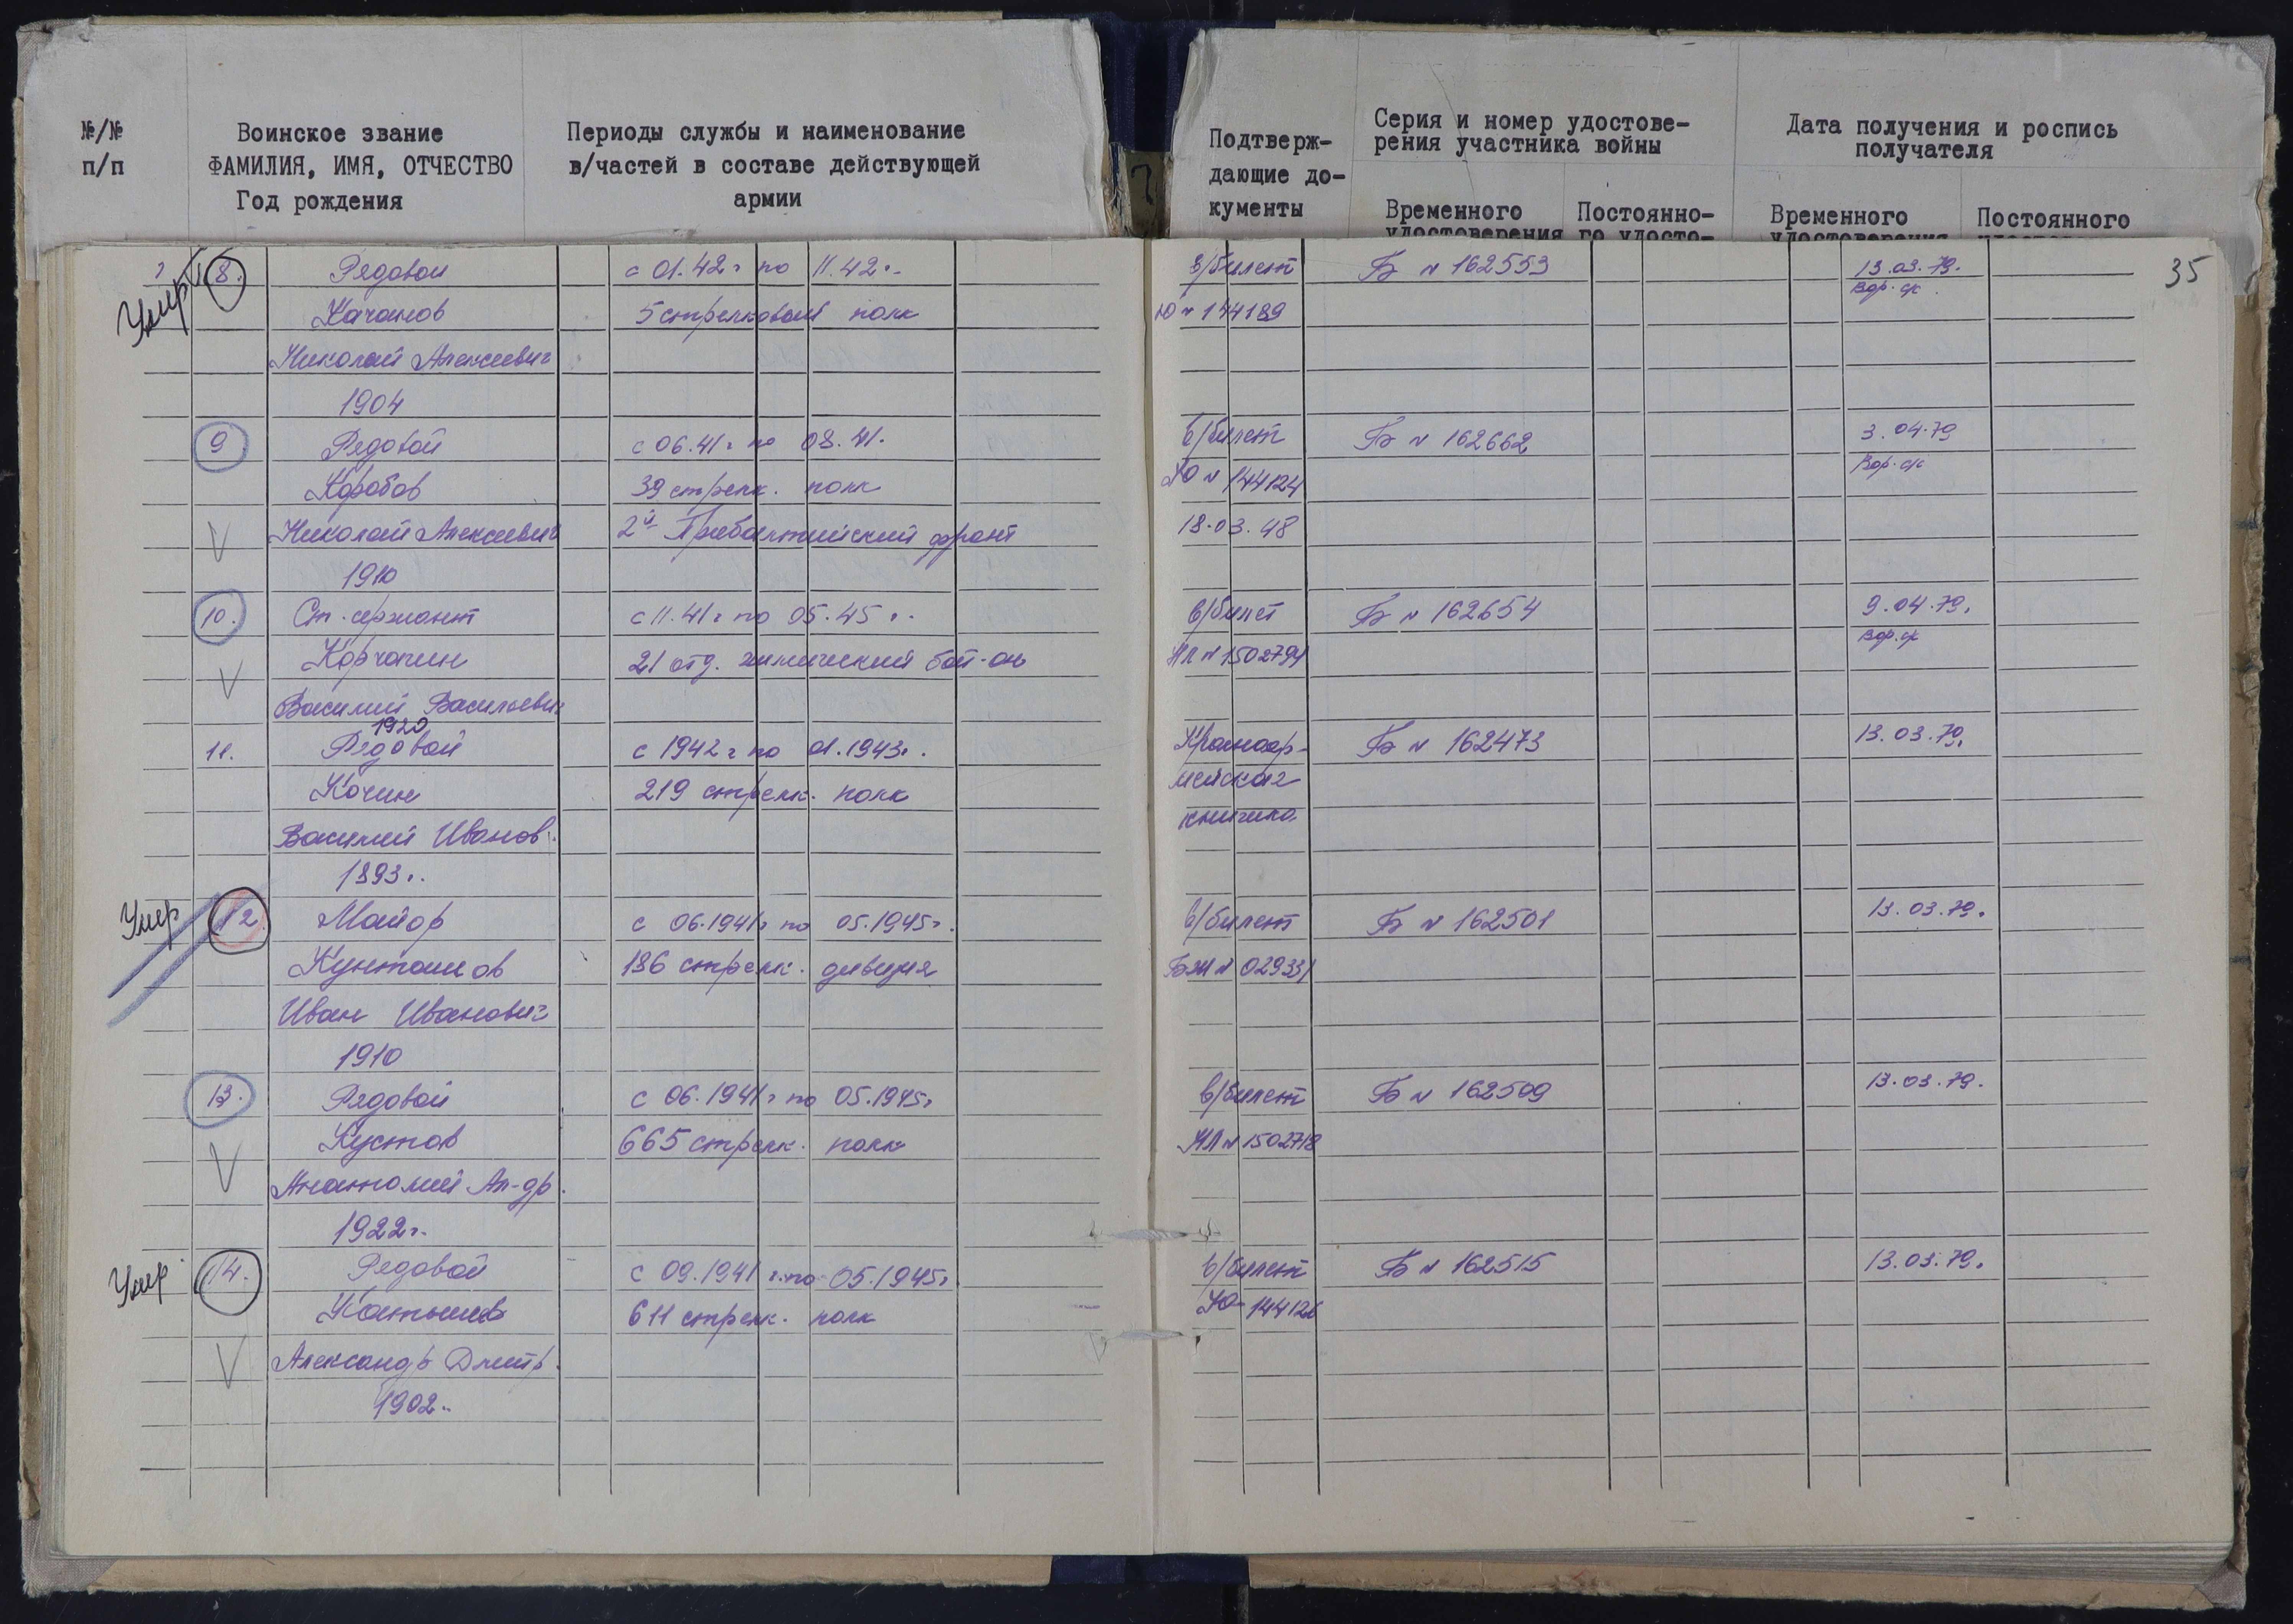 №/№
п/п
Воинское звание
ФАМИЛИЯ, ИМЯ, ОТЧЕСТВО
Год рождения
Периоды службы и наименование
в/частей в составе действующей
армии
Подтверж-
дающие до-
кументы
Серия и номер удостове-
рения участника войны
Временного
удостоверения
Постоянно-
го удосто-
Дата получения и роспись
получателя
Временного
удостоверения
Постоянного
35
Умер 8. Рядовой с 01.42г по 11.42г. в/билет Б № 162553 13.03.79.
Качанов 5 стрелковый полк Ю № 144189 Вор. ск.
Николай Алексеевич
1904
9 Рядовой с 06.41г по 08.41. в/билет Б № 162662 3.04.79
Коробов 39 стрелк. полк Ю № 144124 Вор. ск
Николай Алексеевич 2й Прибалтийский фронт 18.03.48
1910
10. Ст. сержант с 11.41г по 05.45г. в/билет Б № 162654 9.04.79.
Корчагин 21 отд. химический бат-он НЛ № 1502794 Вор. ск
Василий Васильевич
1920
11. Рядовой с 1942г по 01.1943г. Красноар- Б № 162473 13.03.79.
Кочин 219 стрелк. полк мейская
Василий Иванов. книжка
1893г.
Умер 12 Майор с 06.1941г по 05.1945г. в/билет Б № 162501 13.03.79.
186 стрелк. дивизия № 029331
Иван Иванович
1910
13. Рядовой с 06.1941г по 05.1945г в/билет Б № 162509 13.03.79.
Кустов 665 стрелк. полк НЛ № 1502718
Анатолий Ал-др.
1922г.
Умер 14. Рядовой с 09.1941г. по 05.1945г. в/билет Б № 162515 13.03.79.
Катышев 611 стрелк. полк Ю- 144126
Александр Дмитр.
1902г.